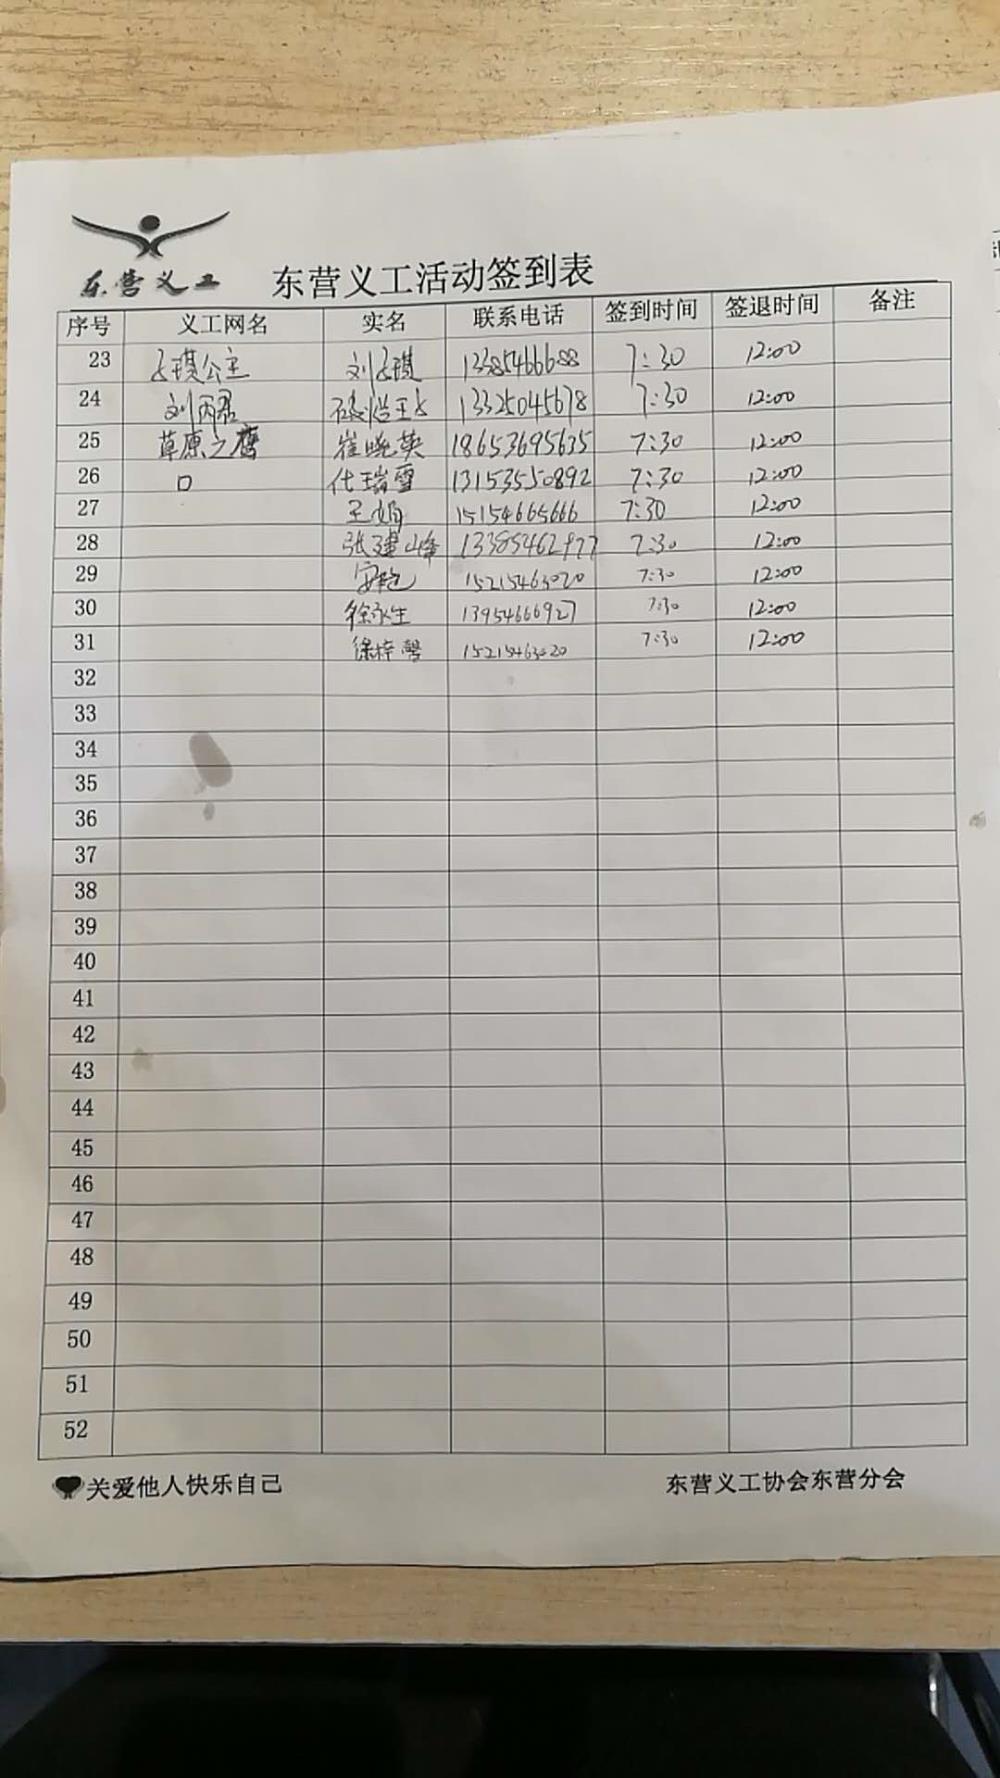 东营义工
东营义工活动签到表
序号 义工网名 实名 联系电话 签到时间 签退时间 备注
23 公主 刘 13385466688 7:30 12:00
24 刘丙君 13325045678 7:30 12:00
25 草原之鹰 崔晓英 18653695635 7:30 12:00
26 口 代瑞雪 13153550892 7:30 12:00
27 王娟 15154665666 7:30 12:00
28 张建峰 13385462977 7:30 12:00
29 15215463020 7:30 12:00
30 徐永生 13954666927 7:30 12:00
31 徐梓馨 15215463020 7:30 12:00
32
33
34
35
36
37
38
39
40
41
42
43
44
45
46
47
48
49
50
51
52
关爱他人快乐自己 东营义工协会东营分会